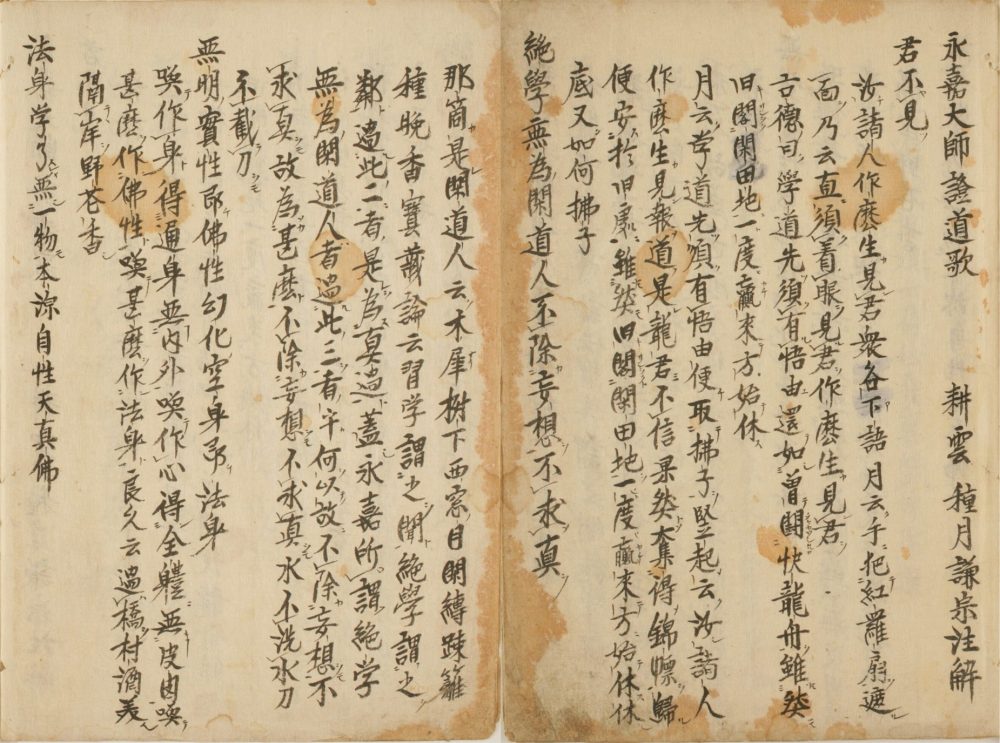 永嘉大師證道歌 耕雲種月謙宗注解
君不見
汝諸人作麽生見君衆各下語月云手把紅羅扇遮
面乃云直須着眼見君作麽生見君
古德曰學道先須有悟由還如曽鬪快龍舟雖然
旧閣閑田地一度贏来方始休
月云学道先須有悟由便取拂子竪起云汝諸人
作麽生見報道是龍君不信果然奪得錦幖歸
便安於旧処雖然旧閣閑田地一度贏来方始休休
底又如何拂子
絶學無為閑道人不除妄想不求真
那箇是閑道人云木犀樹下西窓日閑縛疎籬
種晩香寳蔵論云習学謂之聞絶學謂之
鄰過此二者是為真過蓋永嘉所謂絶学
無為閑道人者過此三者乎何以故不除妄想不
求真故為甚麽不除妄想不求真水不洗水刀
不截刀
無明實性即佛性幻化空身即法身
喚作身得遍身無内外喚作心得全軆無皮肉喚
甚麽作佛性喚甚麽作法身良久云過橋村酒美
隔岸野花香
法身学了無一物本源自性天真佛